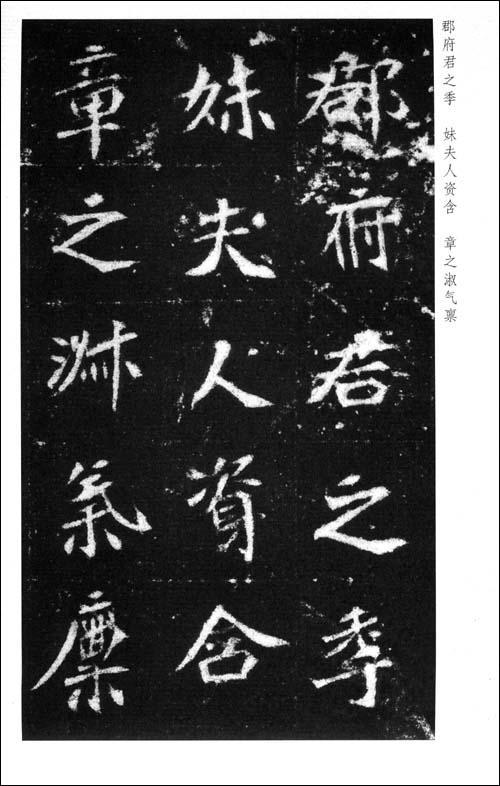 郡府君之季 妹夫人资含 章之淑气禀
郡府君之季
妹夫人資含
章之淑氣稟